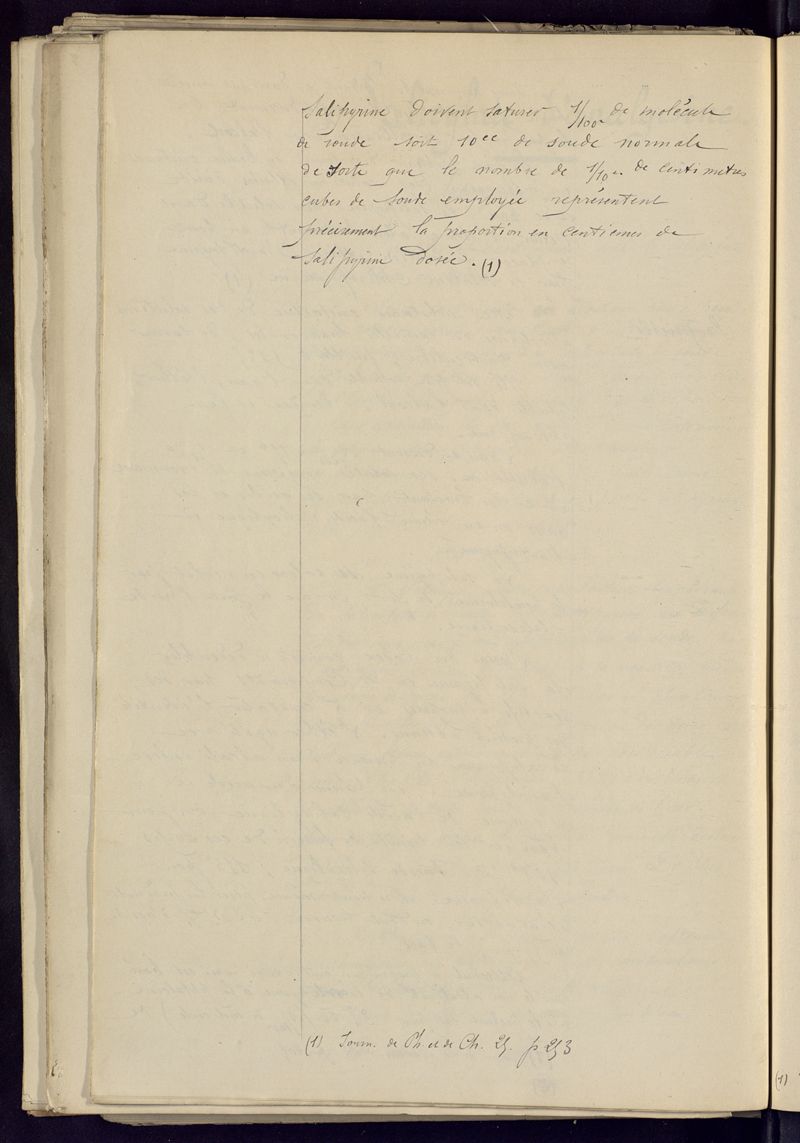 Salipyrine doivent saturer 1/100e de molécule
de soude soit 10cc de soude normale
de sorte que le nombre de 1/10e de centimetres
cubes de soude employée représentent
précisement la proportion en centiemes de
Salipyrine dosée. (1)
(1) Journ. de Ph. et de Ch. 25. p 253
(1)